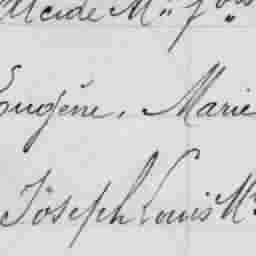 Alcide M.
Eugène, Marie
Joseph Louis M.